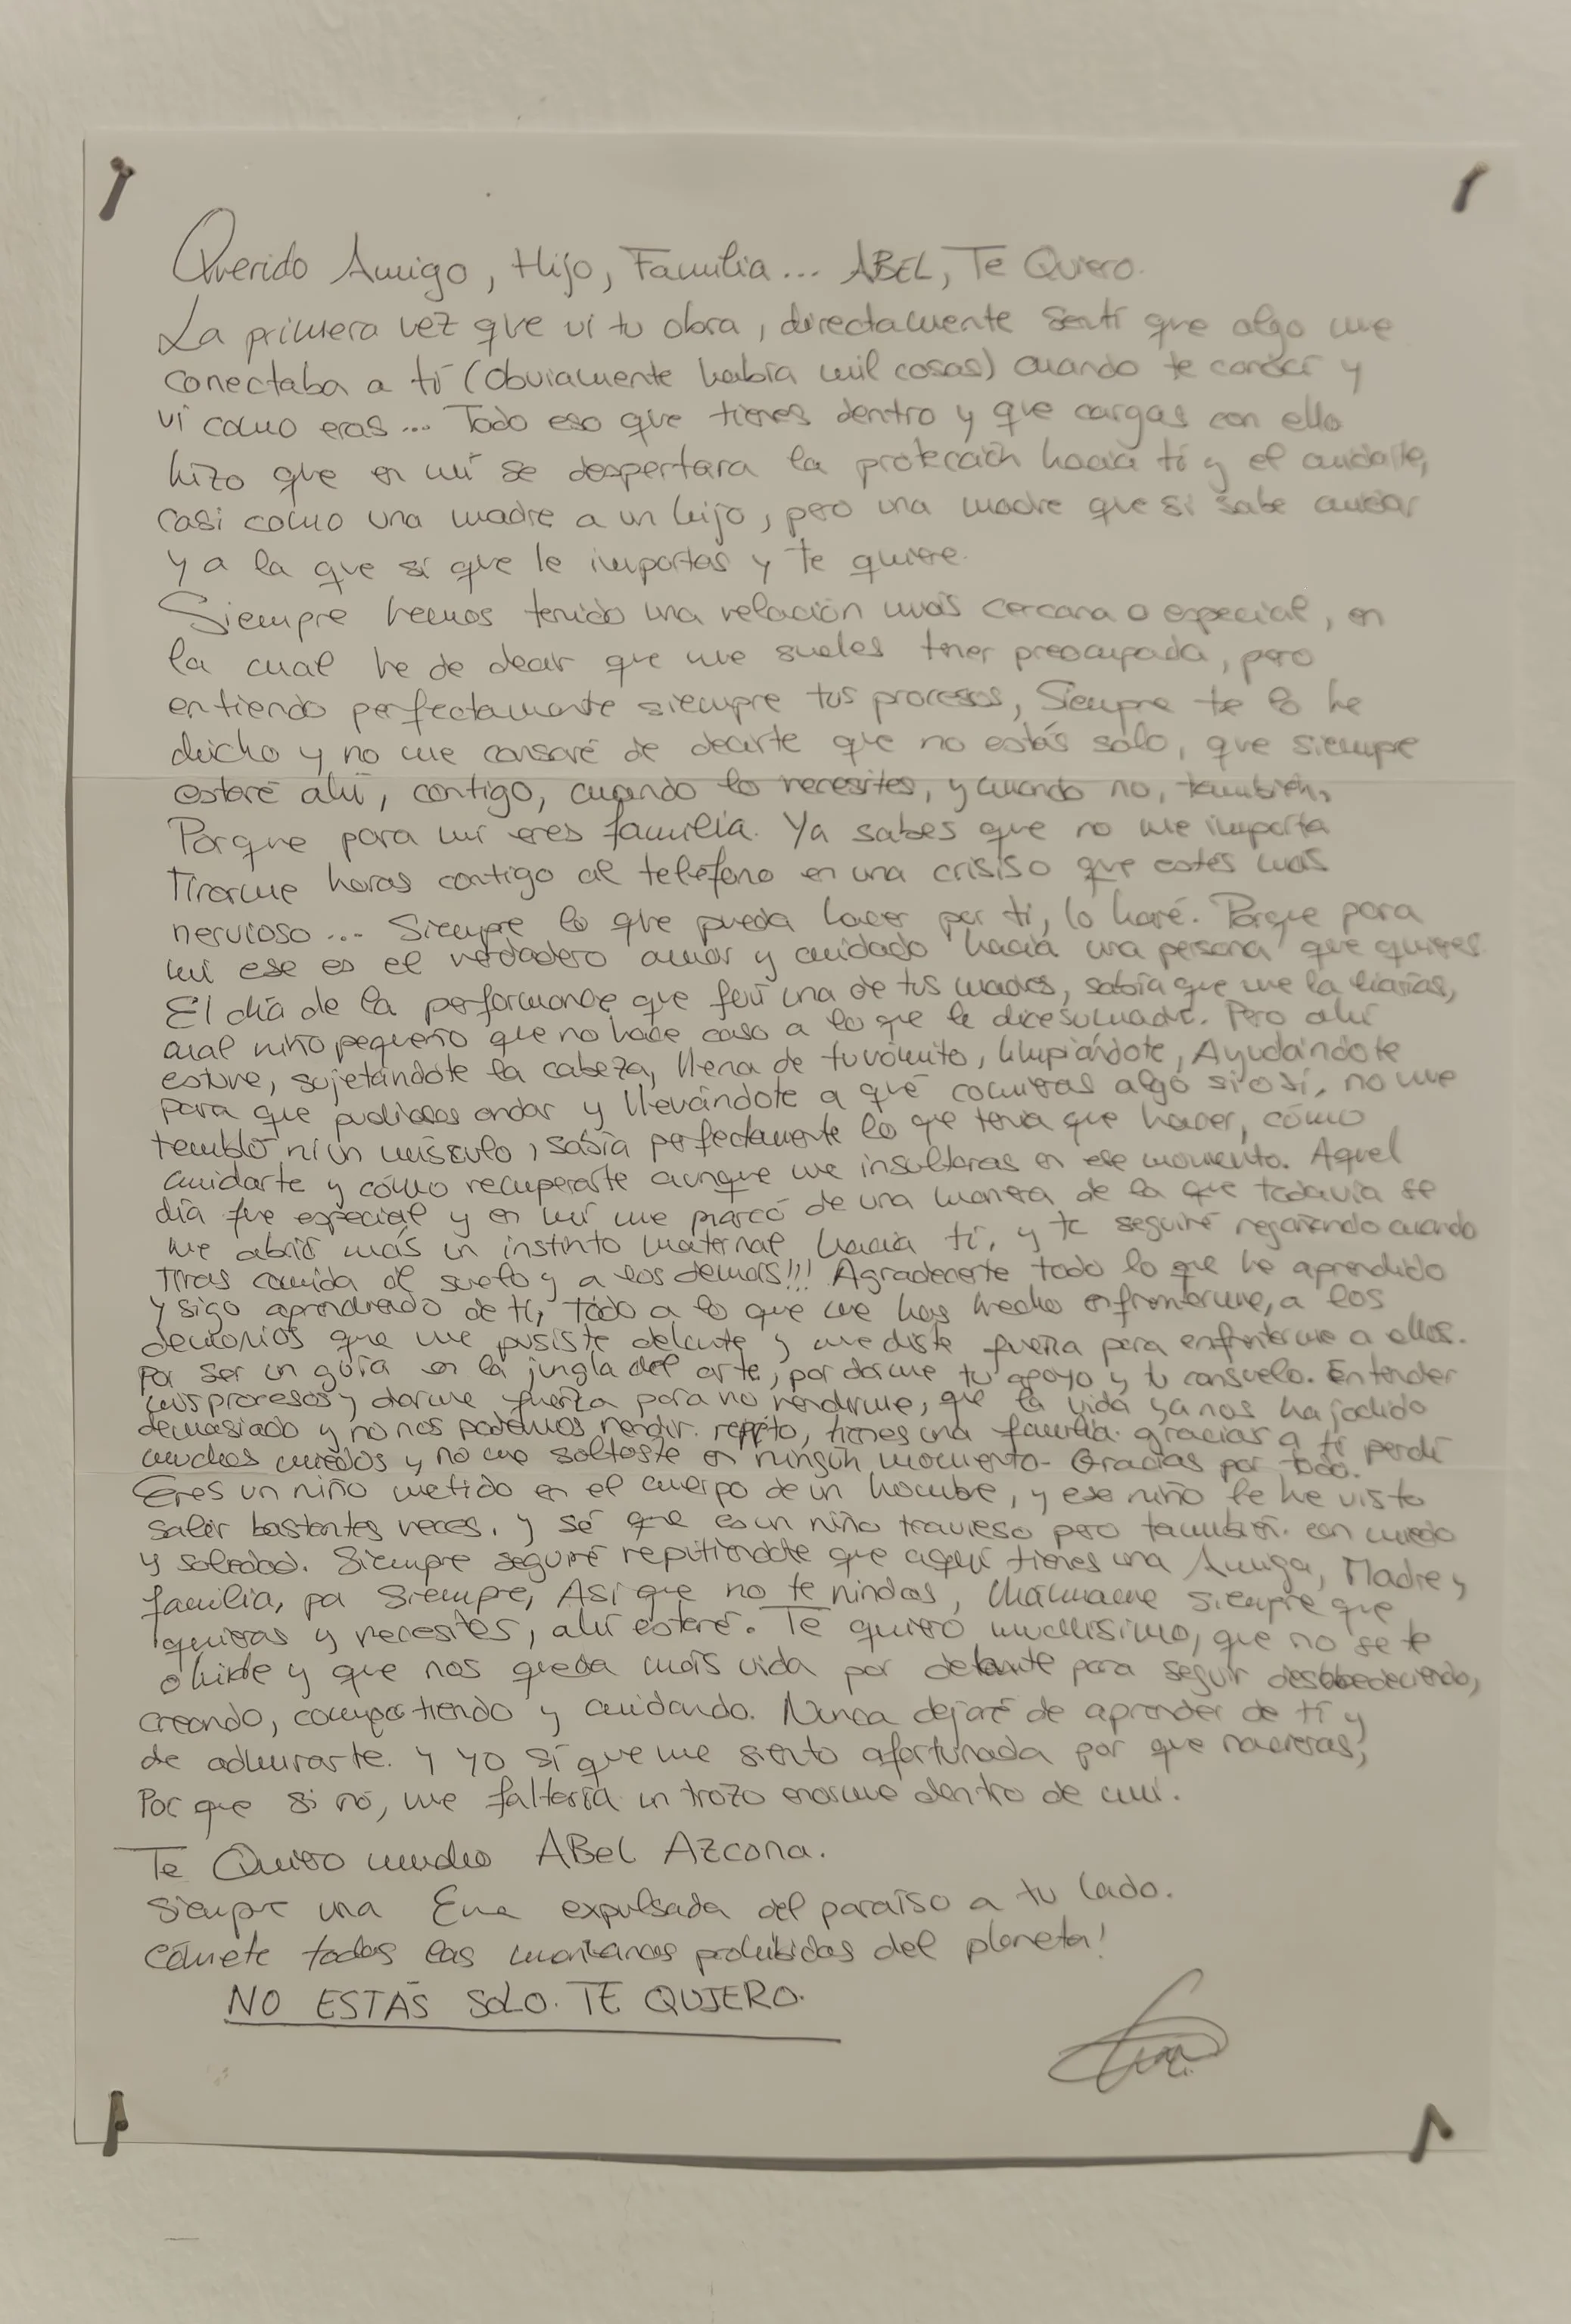 Querido Amigo, Hijo, Familia... ABEL, Te Quiero.
La primera vez que ví tu obra, directamente sentí que algo me
conectaba a tí (obviamente había mil cosas) cuando te conocí y
ví como eras... Todo eso que tienes dentro y que cargas con ello
hizo que en mí se despertara la protección hacia tí y el cuidarte,
casi como una madre a un hijo, pero una madre que si sabe cuidar
y a la que sí que le importas y te quiere.
Siempre hemos tenido una relación más cercana o especial, en
la cual he de decir que me sueles tener preocupada, pero
entiendo perfectamente siempre tus procesos, Siempre te lo he
dicho y no me cansaré de decirte que no estás solo, que siempre
estaré ahí, contigo, cuando lo necesites, y cuando no, también,
Porque para mí eres familia. Ya sabes que no me importa
Tirarme horas contigo al teléfono en una crisis o que estés más
nervioso... Siempre lo que pueda hacer por tí, lo haré. Porque para
mí ese es el verdadero amor y cuidado hacia una persona que quieres
El día de la performance que fuí una de tus madres, sabía que me la liarías,
cual niño pequeño que no hace caso a lo que le dice su madre. Pero ahí
estuve, sujetándote la cabeza, llena de tu vómito, limpiándote, Ayudándote
para que pudieses andar y llevándote a que comieras algo sí o sí, no me
tembló ni un músculo, sabía perfectamente lo que tenía que hacer, cómo
cuidarte y cómo recuperarte aunque me insultaras en ese momento. Aquel
día fue especial y en mí me marcó de una manera de la que todavía se
me abrió más un instinto maternal hacia tí, y te seguiré regañando cuando
tiras comida al suelo y a los demás!!! Agradecerte todo lo que he aprendido
y sigo aprendiendo de tí, todo a lo que me has hecho enfrentarme, a los
demonios que me pusiste delante y me diste fuerza para enfrentarme a ellos.
Por ser un guía en la jungla del arte, por darme tu apoyo y tu consuelo. Entender
mis procesos y darme fuerza para no rendirme, que la vida ya nos ha jodido
demasiado y no nos podemos rendir. repito, tienes una familia. gracias a tí perdí
muchos miedos y no me soltaste en ningún momento. Gracias por todo.
Eres un niño metido en el cuerpo de un hombre, y ese niño le he visto
salir bastantes veces. y sé que es un niño travieso pero también con miedo
y soledad. Siempre seguiré repitiendote que aquí tienes una Amiga, Madre y
familia, pa siempre, Así que no te rindas, llámame siempre que
quieras y necesites, ahí estaré. Te quiero muchísimo, que no se te
olvide y que nos queda más vida por delante para seguir desobedeciendo,
creando, compartiendo y cuidando. Nunca dejaré de aprender de tí y
de admirarte. Y yo sí que me siento afortunada por que nacieras,
Por que si no, me faltaría un trozo enorme dentro de mí.
Te Quiero mucho ABel AZcona.
Siempre una Eva expulsada del paraíso a tu lado.
Cómete todas las manzanas prohibidas del planeta!
NO ESTÁS SOLO. TE QUIERO.